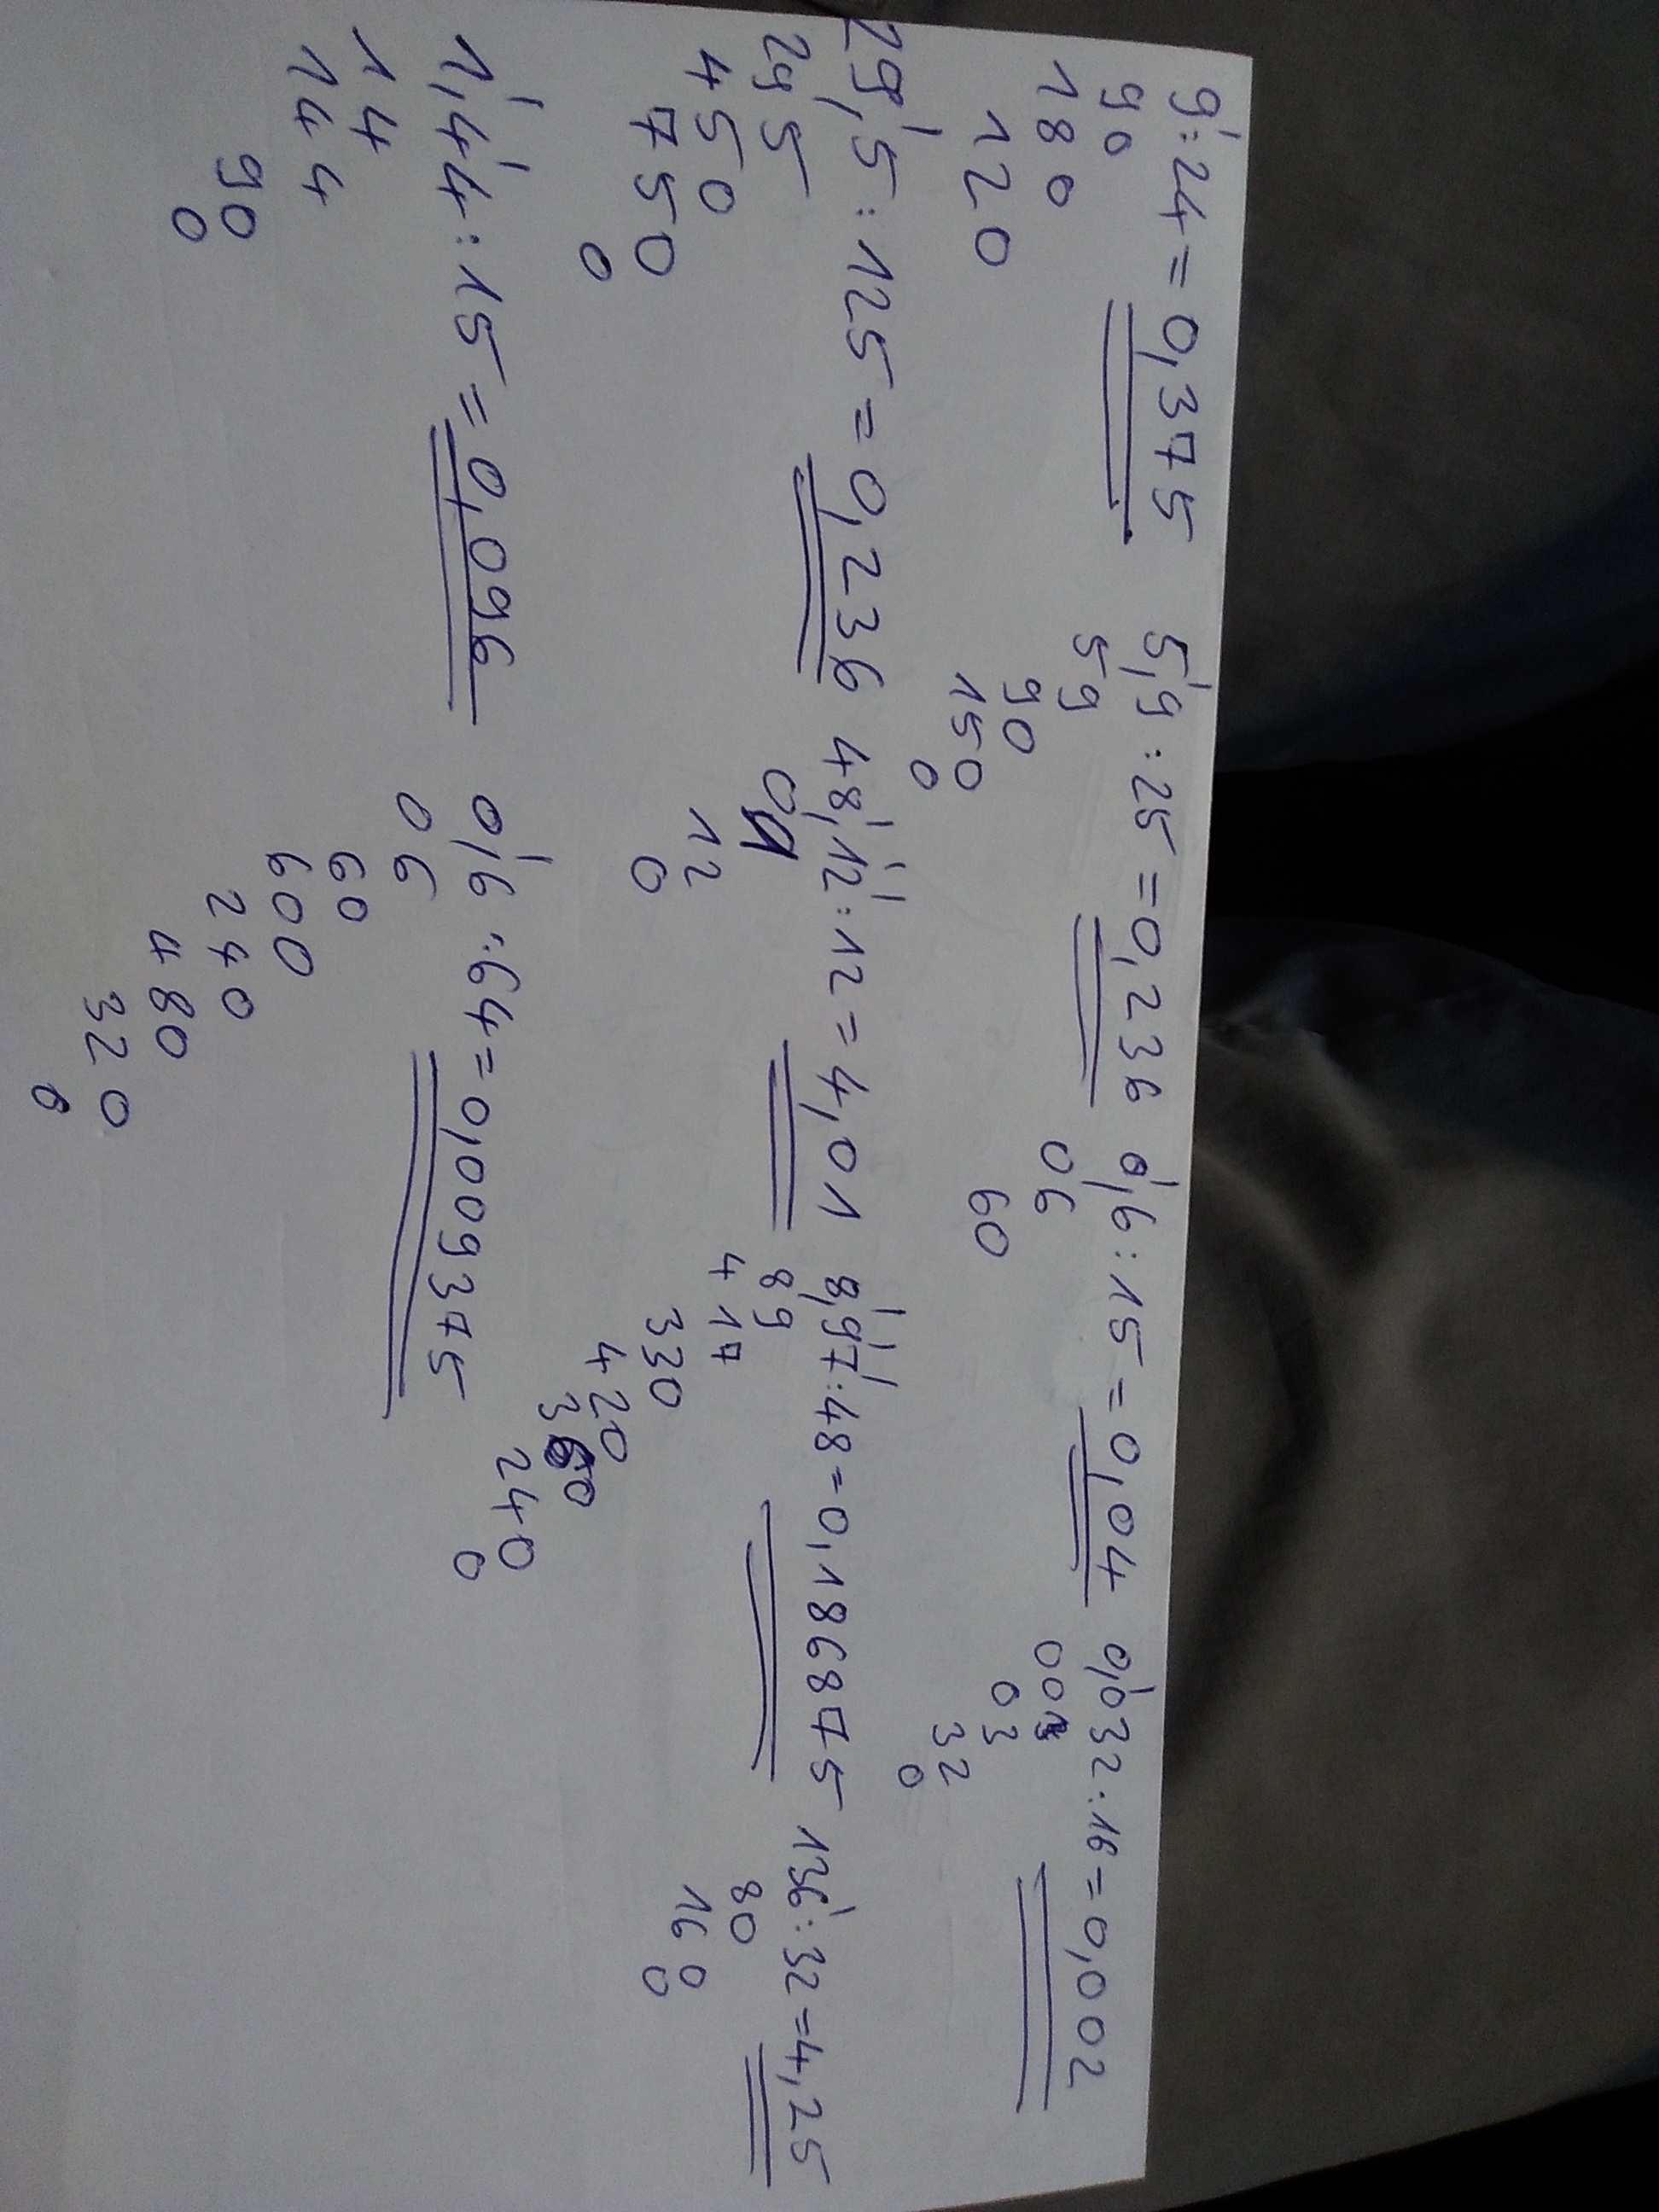 9:24=0,375 5,9:25=0,236 0,6:15=0,04 0,032:16=0,002
90 59 06 00
180 90 60 03
120 150 32
0 0
29,5:125=0,236 48,12:12=4,01 8,97:48=0,186875 136:32=4,25
295 01 89 80
450 12 417 160
750 0 330 0
0 420
360
240
0
1,44:15=0,096 0,6:64=0,009375
14 06
144 60
90 600
0 240
480
320
0